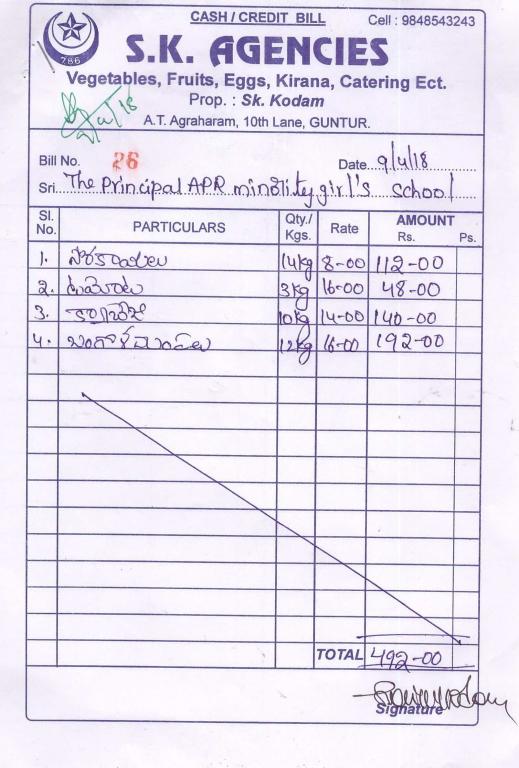 CASH / CREDIT BILL Cell : 9848543243
786
S.K. AGENCIES
Vegetables, Fruits, Eggs, Kirana, Catering Ect.
Prop. : Sk. Kodam
A.T. Agraharam, 10th Lane, GUNTUR.
Bill No. 26 Date 9/4/18
Sri. The Principal APR minolity girl's school
Sl. No. PARTICULARS Qty./ Kgs. Rate AMOUNT Rs. Ps.
1. సొరకాయలు 14kg 8-00 112-00
2. టమోటాలు 3kg 16-00 48-00
3. క్యాబేజి 10kg 14-00 140-00
4. బంగాళదుంపలు 12kg 16-00 192-00
TOTAL 492-00
Signature